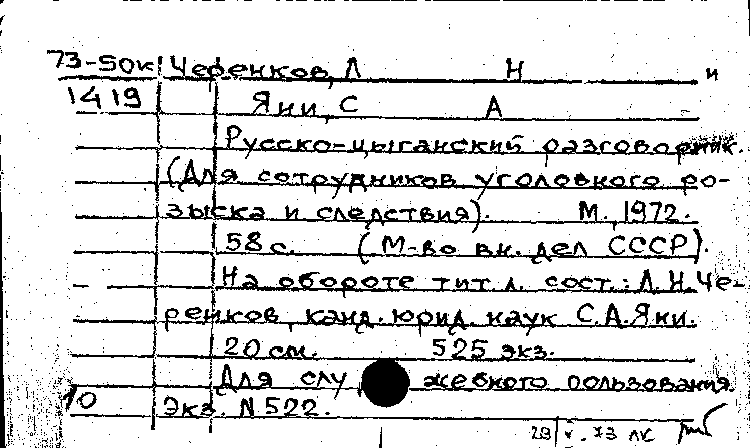 73-50к Черенков, Л Н и
1419 Яни, С А
Русско-цыганский разговорник.
(Для сотрудников уголовного ро-
зыска и следствия). М., 1972.
58 с. (М-во вн. дел СССР).
На обороте тит. л. сост.: Л.Н. Че-
ренков, канд. юрид. наук С.А. Яни.
20 см. 525 экз.
Для служебного пользования.
10 Экз. N 522.
73 ЛК